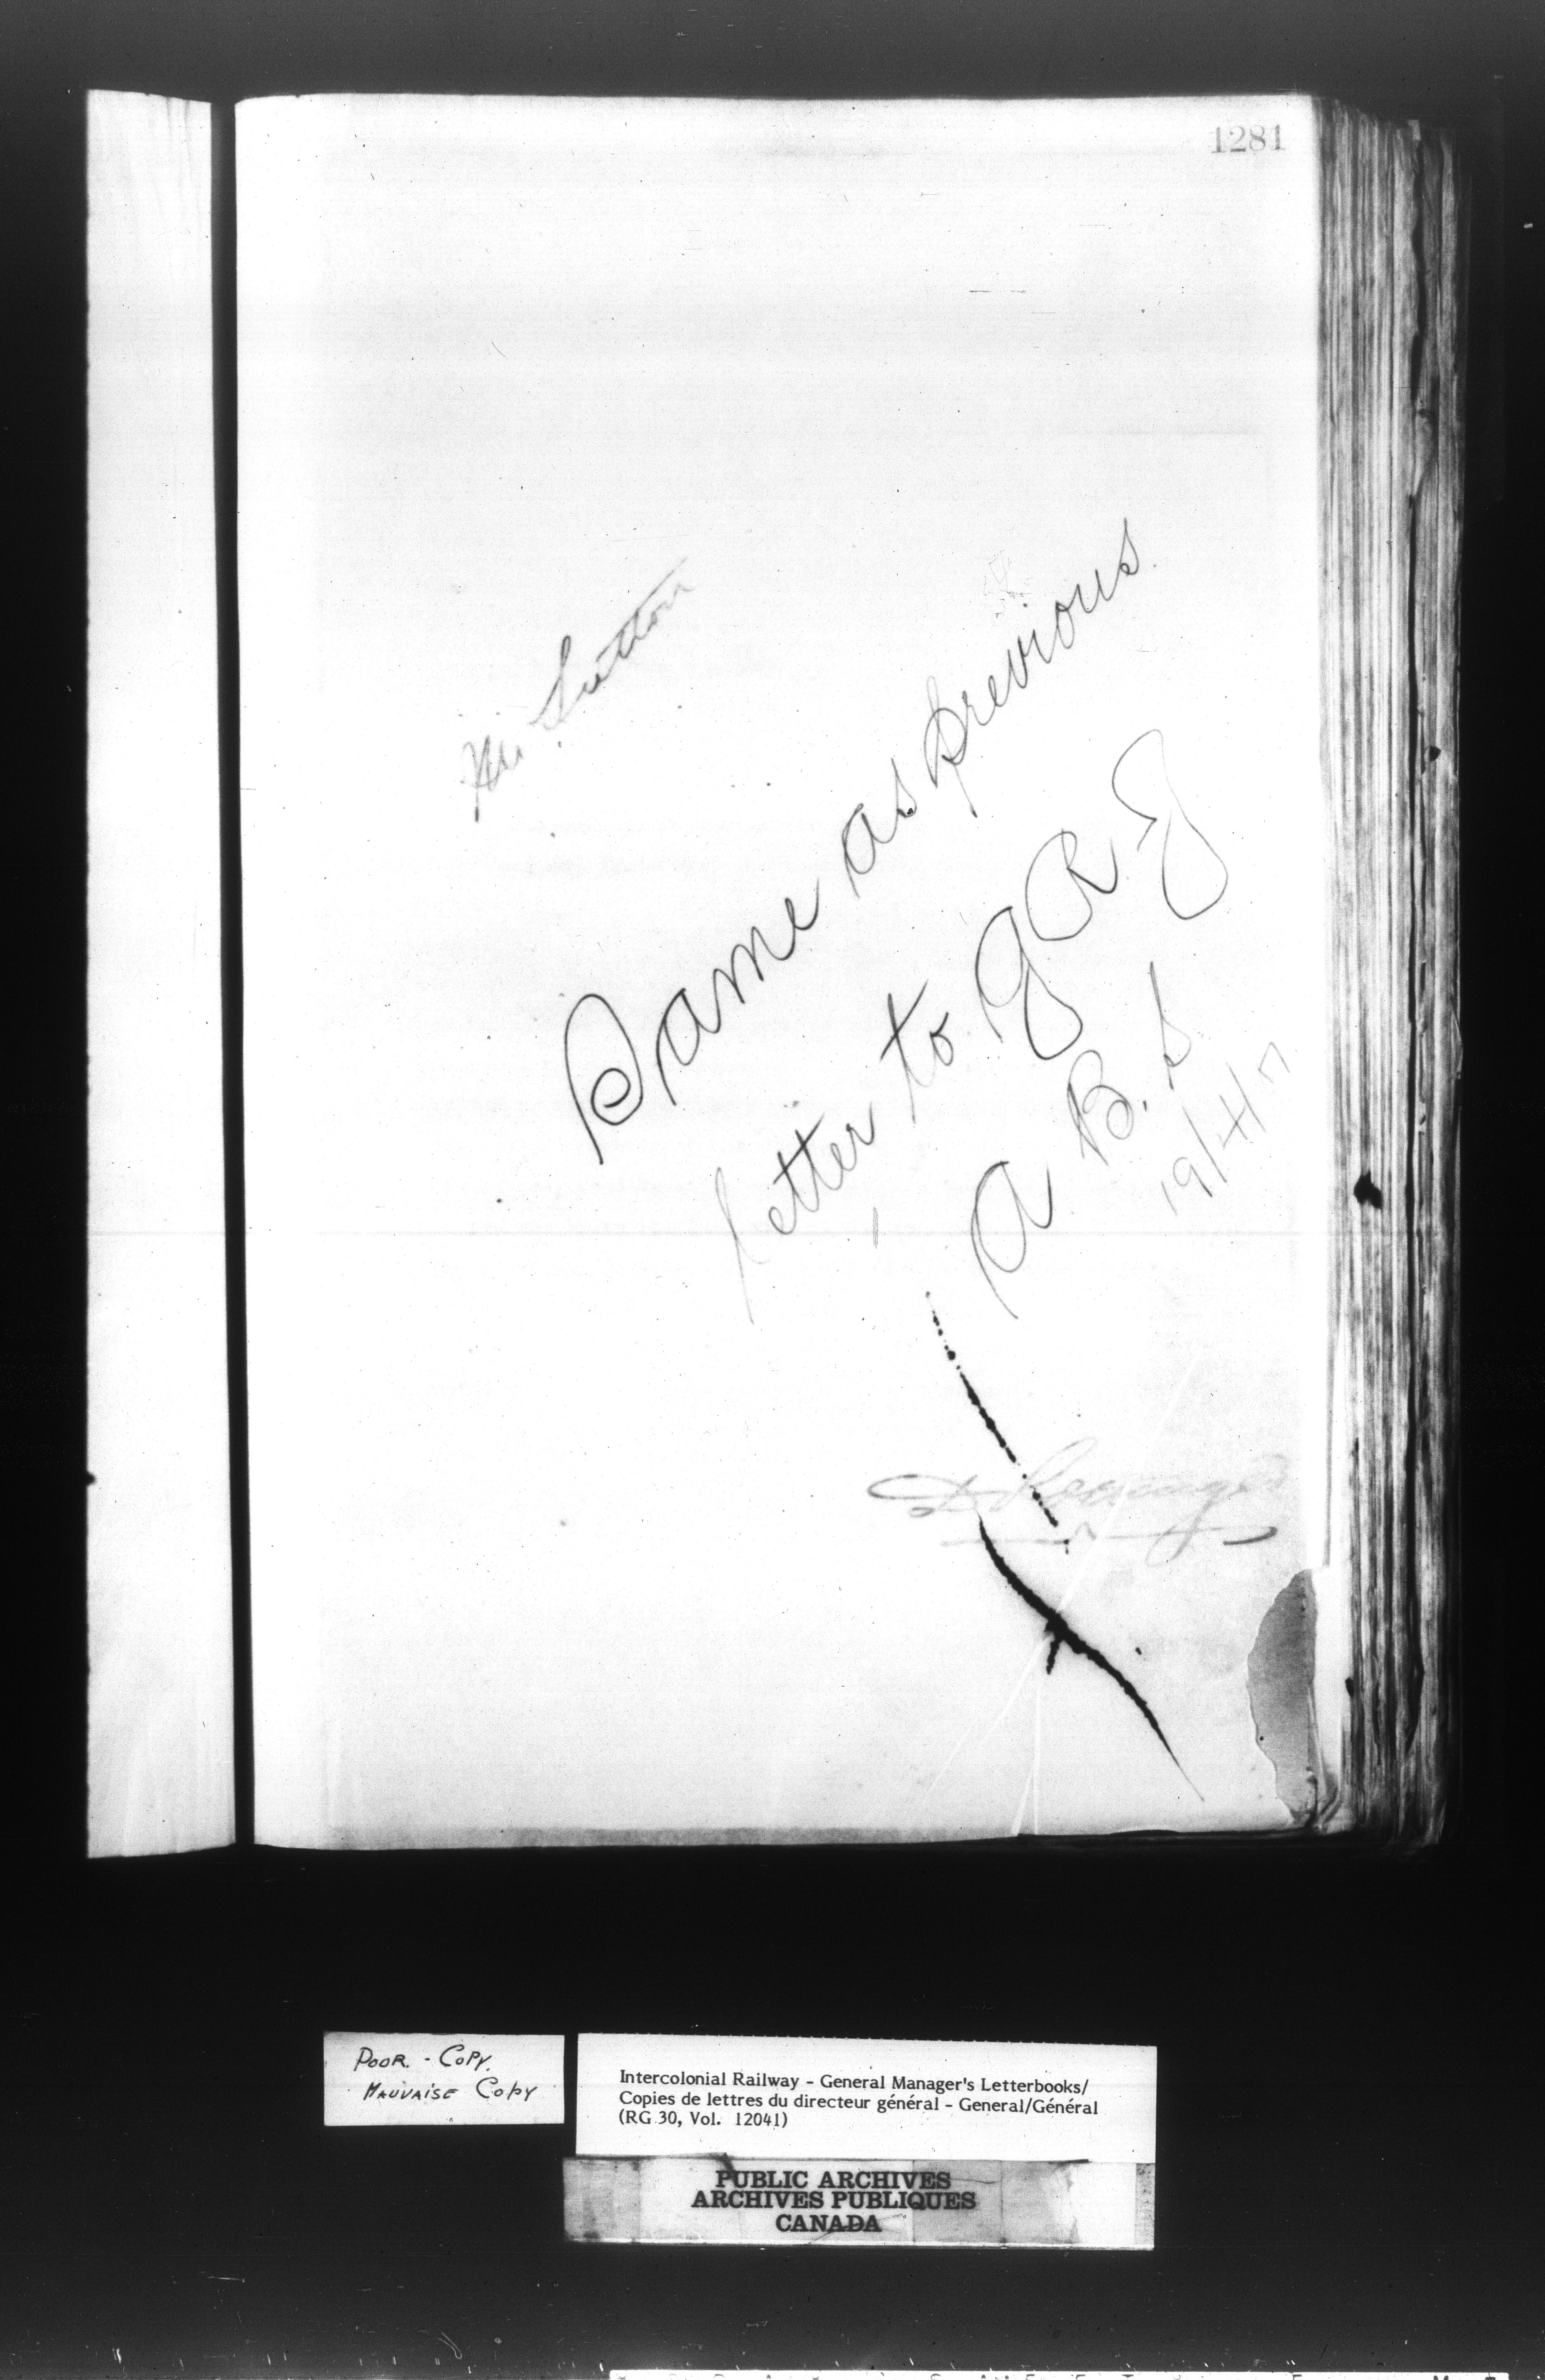 1281
Mr Sutton
Same as previous
letter to G R J
A B. S
19/4/7
POOR. - COPY.
MAUVAISE COPY
Intercolonial Railway - General Manager's Letterbooks/
Copies de lettres du directeur général - General/Général
(RG 30, Vol. 12041)
PUBLIC ARCHIVES
ARCHIVES PUBLIQUES
CANADA